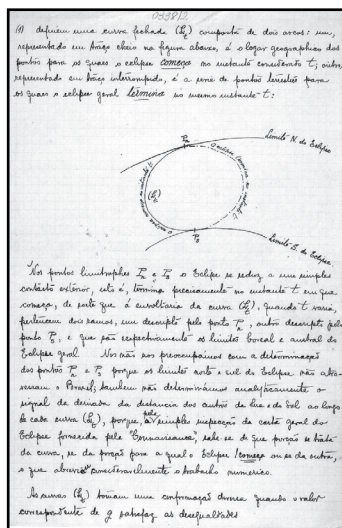 033812
(1) definem uma curva fechada (L_t) composta de dois arcos: um,
representado em traço cheio na figura abaixo, é o logar geographico dos
pontos para os quaes o eclipse começa no instante considerado t; outro,
representado em traço interrompido, é a serie de pontos terrestres para
os quaes o eclipse geral termina no mesmo instante t:
Limite N. do Eclipse
P_n
O eclipse começa no instante t
O eclipse termina no instante t
(L_t)
P_s
Limite S. do Eclipse
Nos pontos limitrophes P_n e P_s o Eclipse se reduz a um simples
contacto exterior, isto é, termina precisamente no instante t em que
começa, de sorte que a envoltoria da curva (L_t), quando t varia,
pertencem dois ramos, um descripto pelo ponto P_n, outro descripto pelo
ponto P_s, e que são respectivamente os limites boreal e austral do
Eclipse geral. Nós não nos preoccupámos com a determinação
dos pontos P_n e P_s porque os limites norte e sul do Eclipse não atra-
vessam o Brasil; tambem não determinámos analyticamente o
signal da derivada da distancia dos centros da lua e do sol ao longo
de cada curva (L_t), porque, pela simples inspecção da carta geral do
Eclipse fornecida pela Connaissance, sabe-se de que porção se trata
da curva, se da porção para a qual o Eclipse começa ou se da outra,
o que abrevia consideravelmente o trabalho numerico.
As curvas (L_t) tomam uma conformação diversa quando o valor
correspondente de g satisfaz as desigualdades